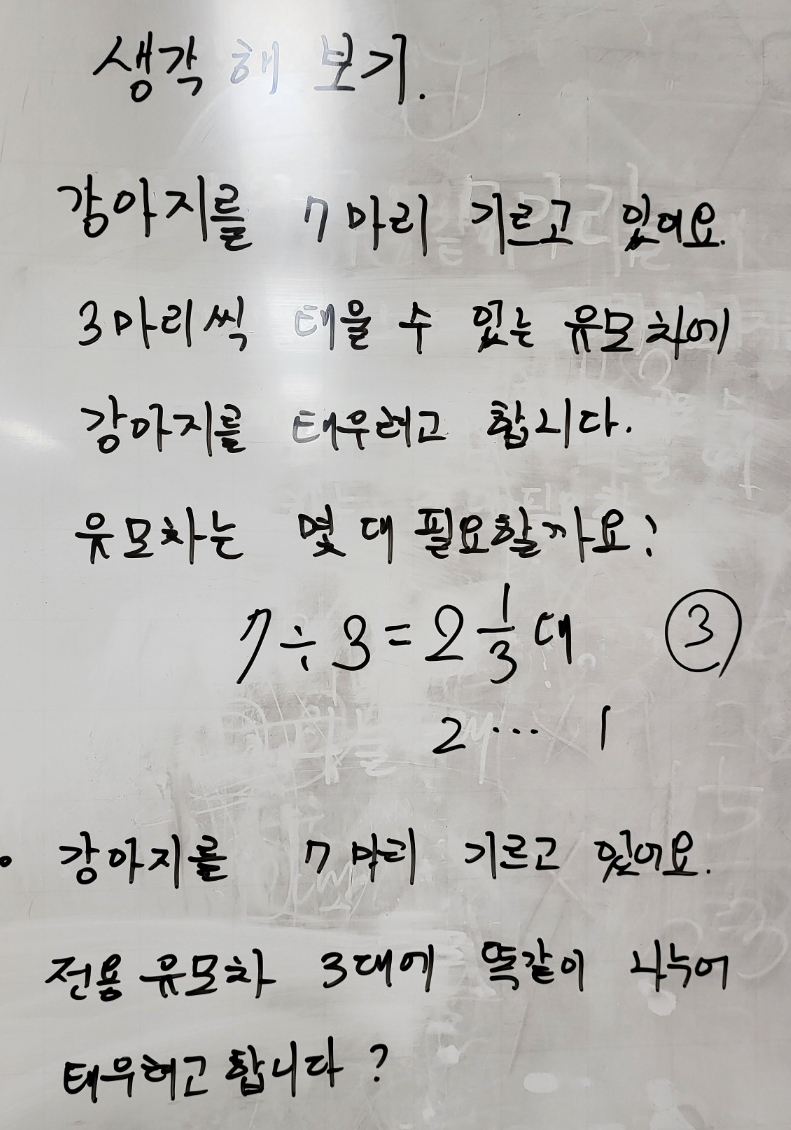 생각 해 보기.
강아지를 7마리 기르고 있어요.
3마리씩 태울 수 있는 유모차에
강아지를 태우려고 합니다.
유모차는 몇 대 필요할까요?
7÷3=2 1/3 대 ③
2 … 1
• 강아지를 7마리 기르고 있어요.
전용 유모차 3대에 똑같이 나누어
태우려고 합니다?